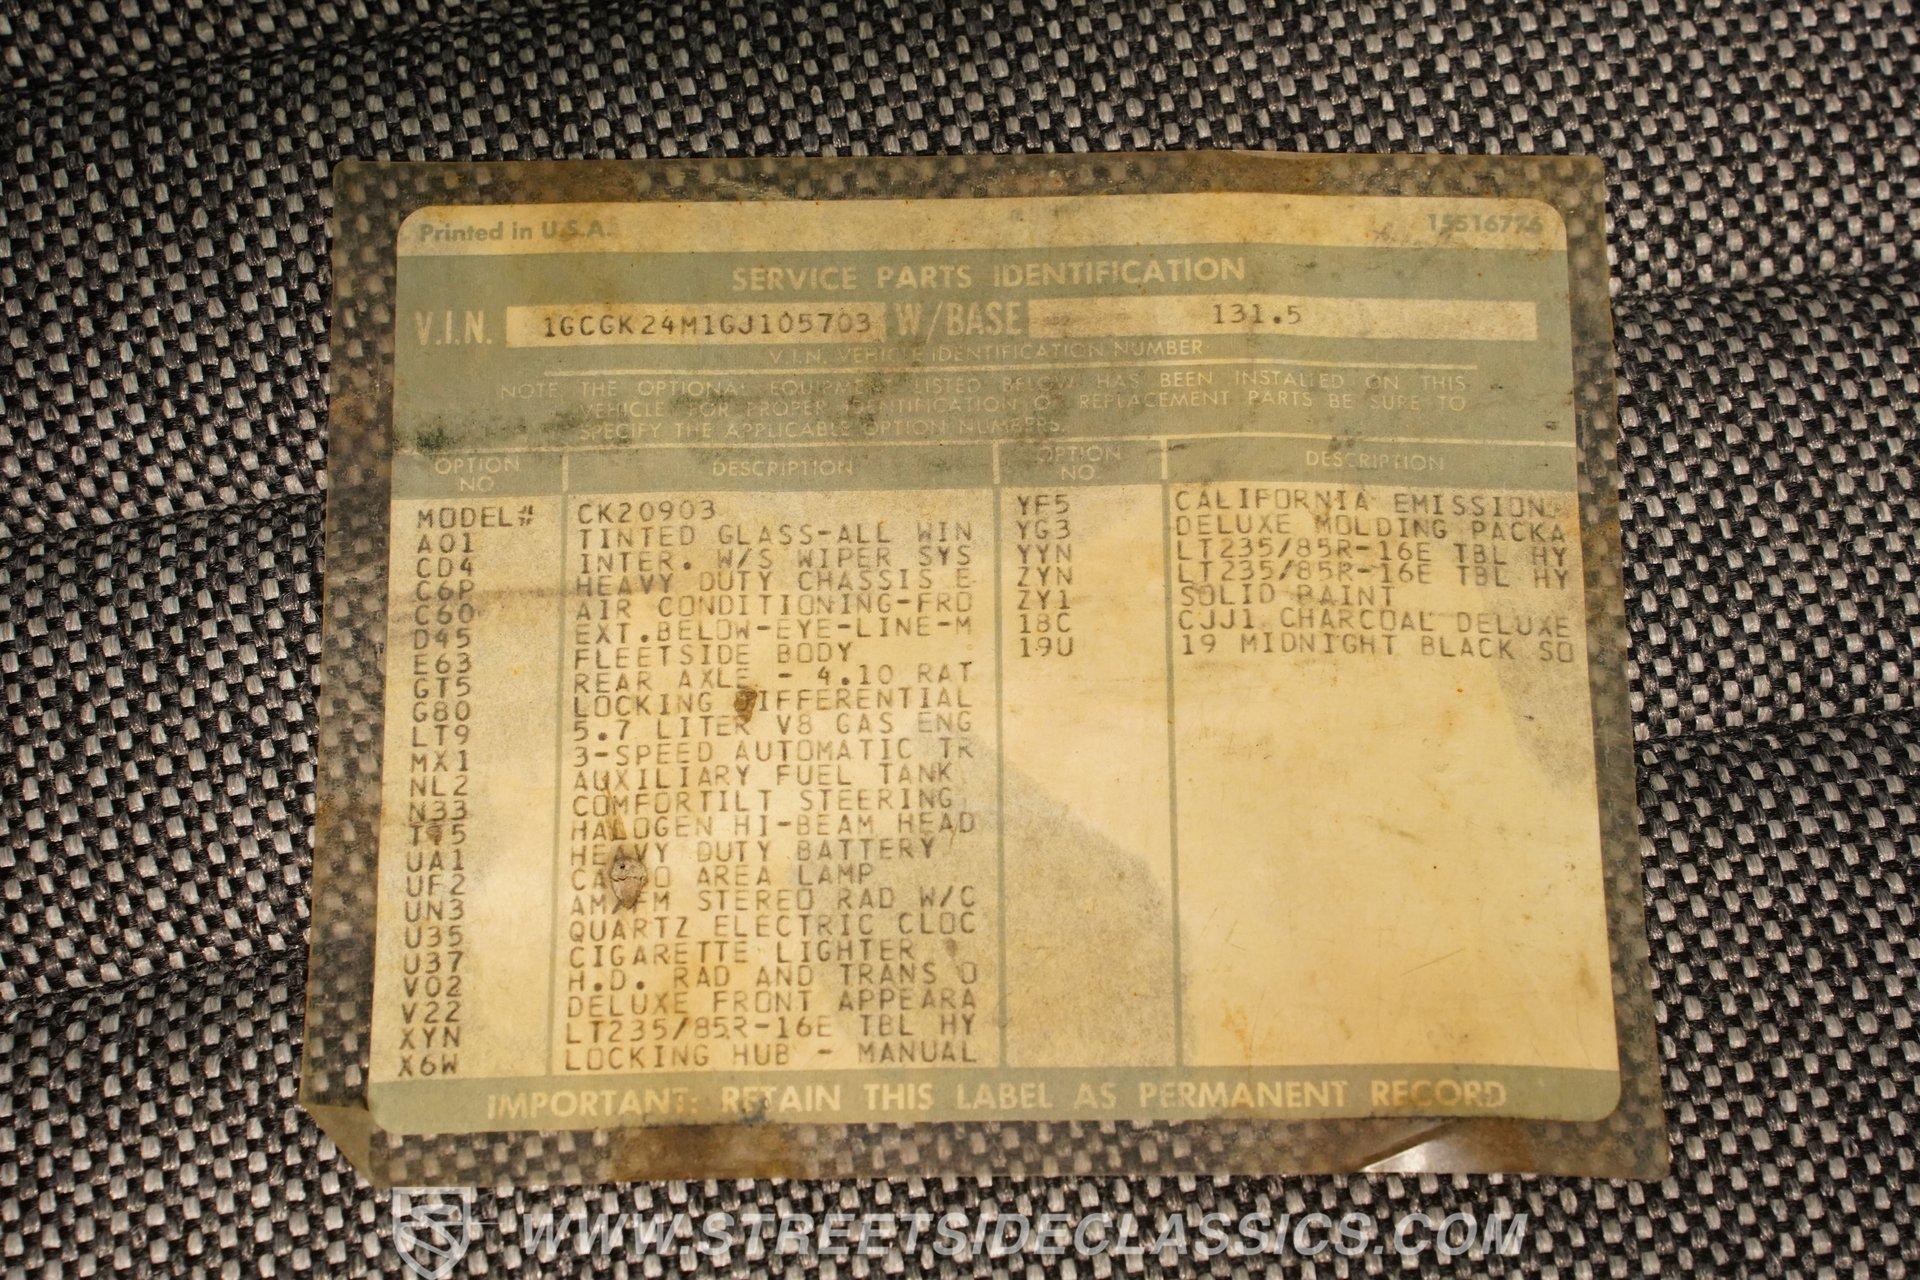 Printed in U.S.A.
15516776
SERVICE PARTS IDENTIFICATION
V.I.N. 1GCGK24M1GJ105703 W/BASE 131.5
V.I.N. VEHICLE IDENTIFICATION NUMBER
NOTE THE OPTIONAL EQUIPMENT LISTED BELOW HAS BEEN INSTALLED ON THIS
VEHICLE FOR PROPER IDENTIFICATION OF REPLACEMENT PARTS BE SURE TO
SPECIFY THE APPLICABLE OPTION NUMBERS.
OPTION NO. DESCRIPTION
MODEL# CK20903
A01 TINTED GLASS-ALL WIN
CD4 INTER. W/S WIPER SYS
C6P HEAVY DUTY CHASSIS E
C60 AIR CONDITIONING-FRO
D45 EXT.BELOW-EYE-LINE-M
E63 FLEETSIDE BODY
GT5 REAR AXLE - 4.10 RAT
G80 LOCKING DIFFERENTIAL
LT9 5.7 LITER V8 GAS ENG
MX1 3-SPEED AUTOMATIC TR
NL2 AUXILIARY FUEL TANK
N33 COMFORTILT STEERING
TT5 HALOGEN HI-BEAM HEAD
UA1 HEAVY DUTY BATTERY
UF2 CARGO AREA LAMP
UN3 AM/FM STEREO RAD W/C
U35 QUARTZ ELECTRIC CLOC
U37 CIGARETTE LIGHTER
V02 H.D. RAD AND TRANS O
V22 DELUXE FRONT APPEARA
XYN LT235/85R-16E TBL HY
X6W LOCKING HUB - MANUAL
OPTION NO. DESCRIPTION
YF5 CALIFORNIA EMISSION
YG3 DELUXE MOLDING PACKA
YYN LT235/85R-16E TBL HY
ZYN LT235/85R-16E TBL HY
ZY1 SOLID PAINT
18C CJJ1 CHARCOAL DELUXE
19U 19 MIDNIGHT BLACK SO
IMPORTANT: RETAIN THIS LABEL AS PERMANENT RECORD
WWW.STREETSIDECLASSICS.COM